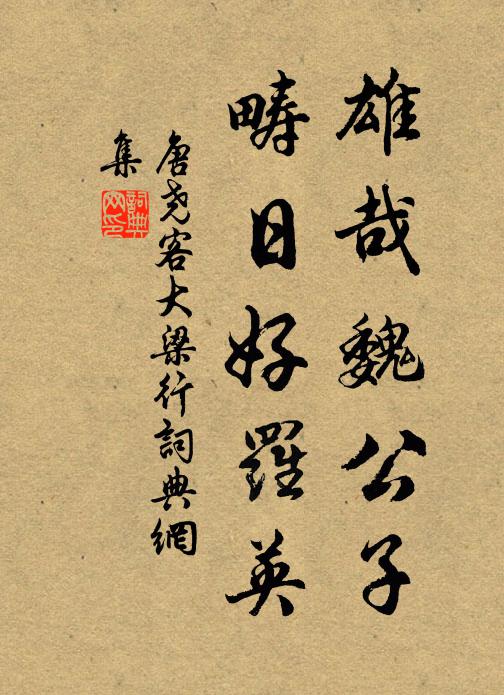 雄哉魏公子
疇日好羅英
唐堯客大梁行詞典網
集
詞典
网印